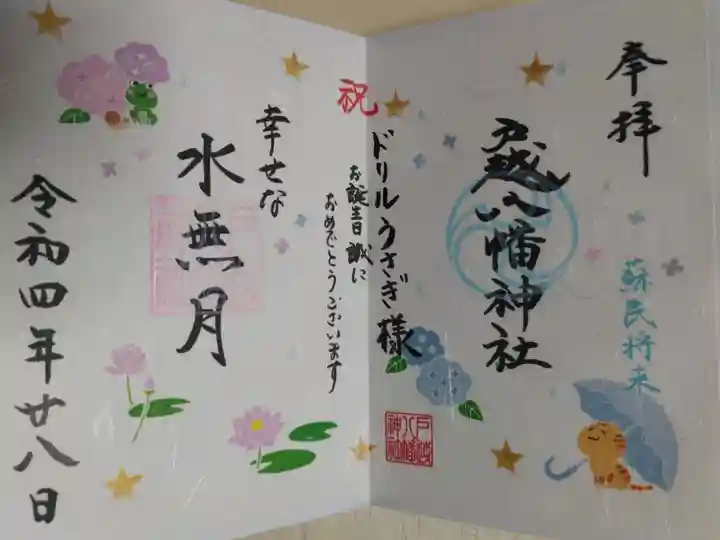 奉拝
蘇民将来
戸越八幡神社
戸越
八幡
神社
祝
ドリルうさぎ様
お誕生日 誠に
おめでとうございます
幸せな
水無月
令和四年廿八日